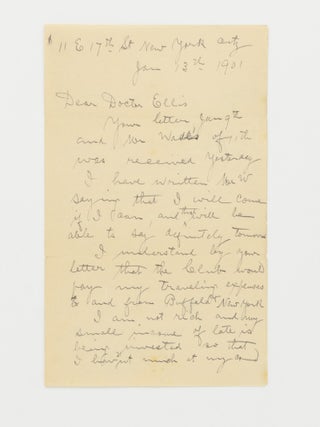 11 E 17th St New York City
Jan 13th 1901
Dear Doctor Ellis
Your letter
and Mr Wade's of 9th
was received yesterday
I have written Mr W
saying that I will come
if I can, and that will be
able to say definitely
I understand by your
letter that the Club would
pay my traveling expenses
to and from Buffalo & New York
I am not rich and my
small income of late is
being invested so that
I haven't much at my